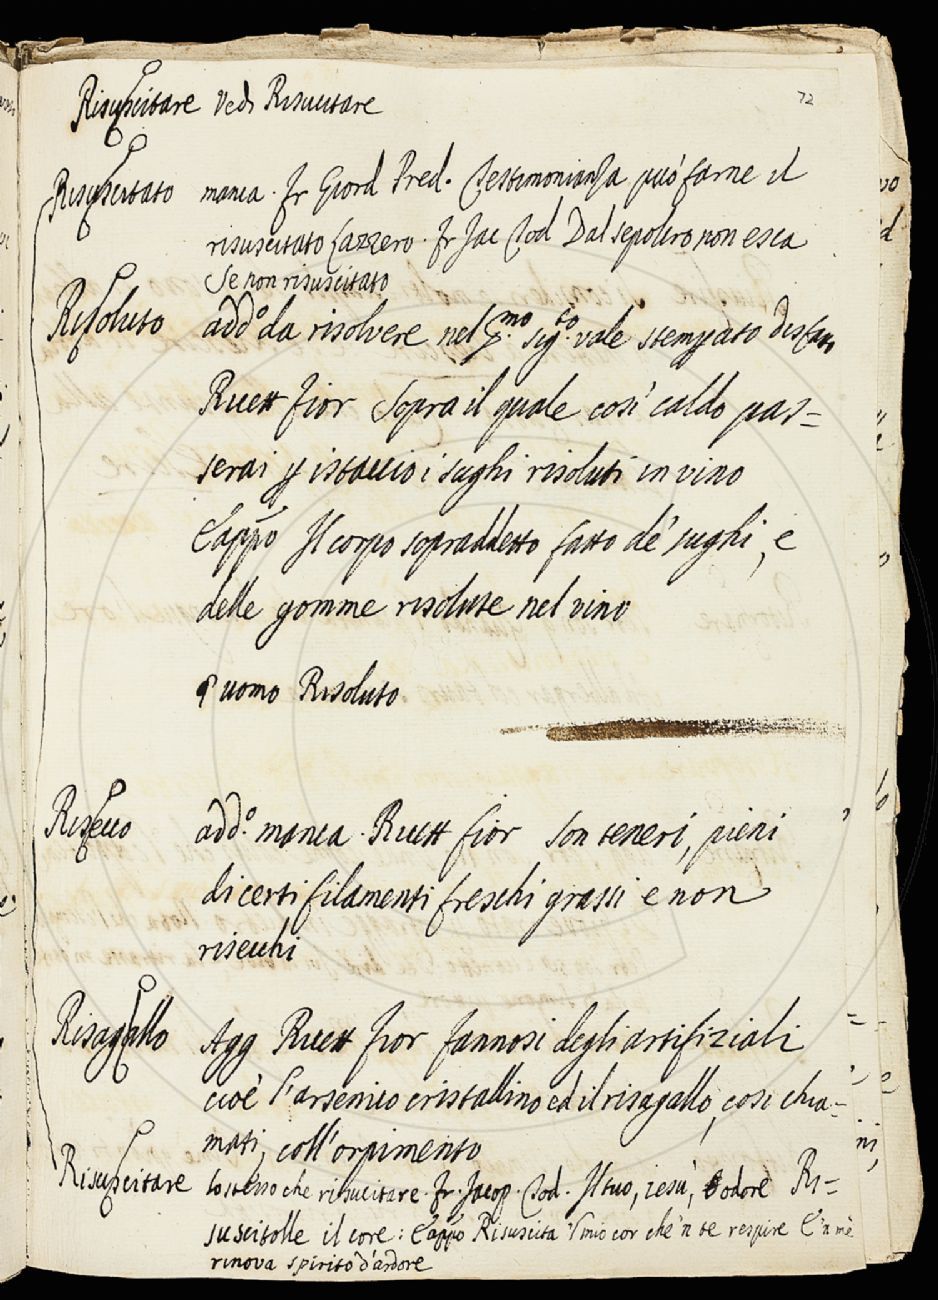 72
Risuscitare Vedi Risucitare
Risuscitato manca. Fr Giord Pred. Testimonianza può farne il
risuscitato Lazzero. Fr Jac Tod Dal sepolcro non esca
Se non risuscitato
Risoluto add.º da risolvere nel P.mo sig.to vale stemprato disfatto
Ricett Fior Sopra il quale così caldo pas=
serai p istaccio i sughi risoluti in vino
Cappº Il corpo sopraddetto fatto de' sughi, e
delle gomme risolute nel vino
uomo Risoluto
Risecco add.º manca. Ricett Fior Son teneri, pieni
di certi filamenti freschi grassi e non
risecchi
Risagallo Agg Ricett Fior Fannosi degli artifiziali
cioè l'arsenico cristallino ed il risagallo, così chia=
mati, coll'orpimento
Risuscitare lo stesso che risucitare. Fr. Jacop. Tod. Il tuo, iesù, odore Ri=
suscitolle il core: Cappº Risuscita 'l mio cor che 'n te respire E 'n me
rinova spirito d'ardore